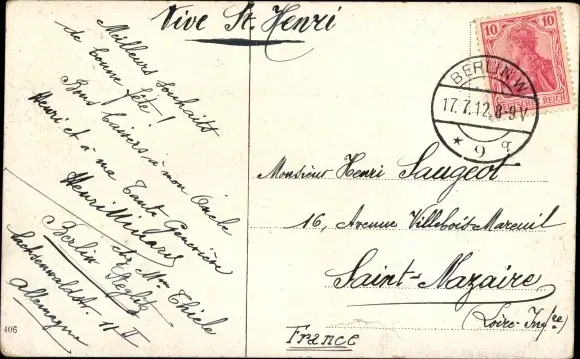 Vive St. Henri
Meilleurs souhaits
de bonne fête!
Bons baisers à mon Oncle
Henri et à ma Tante Geneviève
Henri Minaris
chez Mon Thiele
Berlin Steglitz
Sachsenwaldstr. 11 II
Allemagne
406
10 10
DEUTSCHES REICH
BERLIN W
17.7.12. 8-9V
* 9 q
Monsieur Henri Saugeot
16, Avenue Villebois-Mareuil
Saint-Nazaire
(Loire-Infre)
France